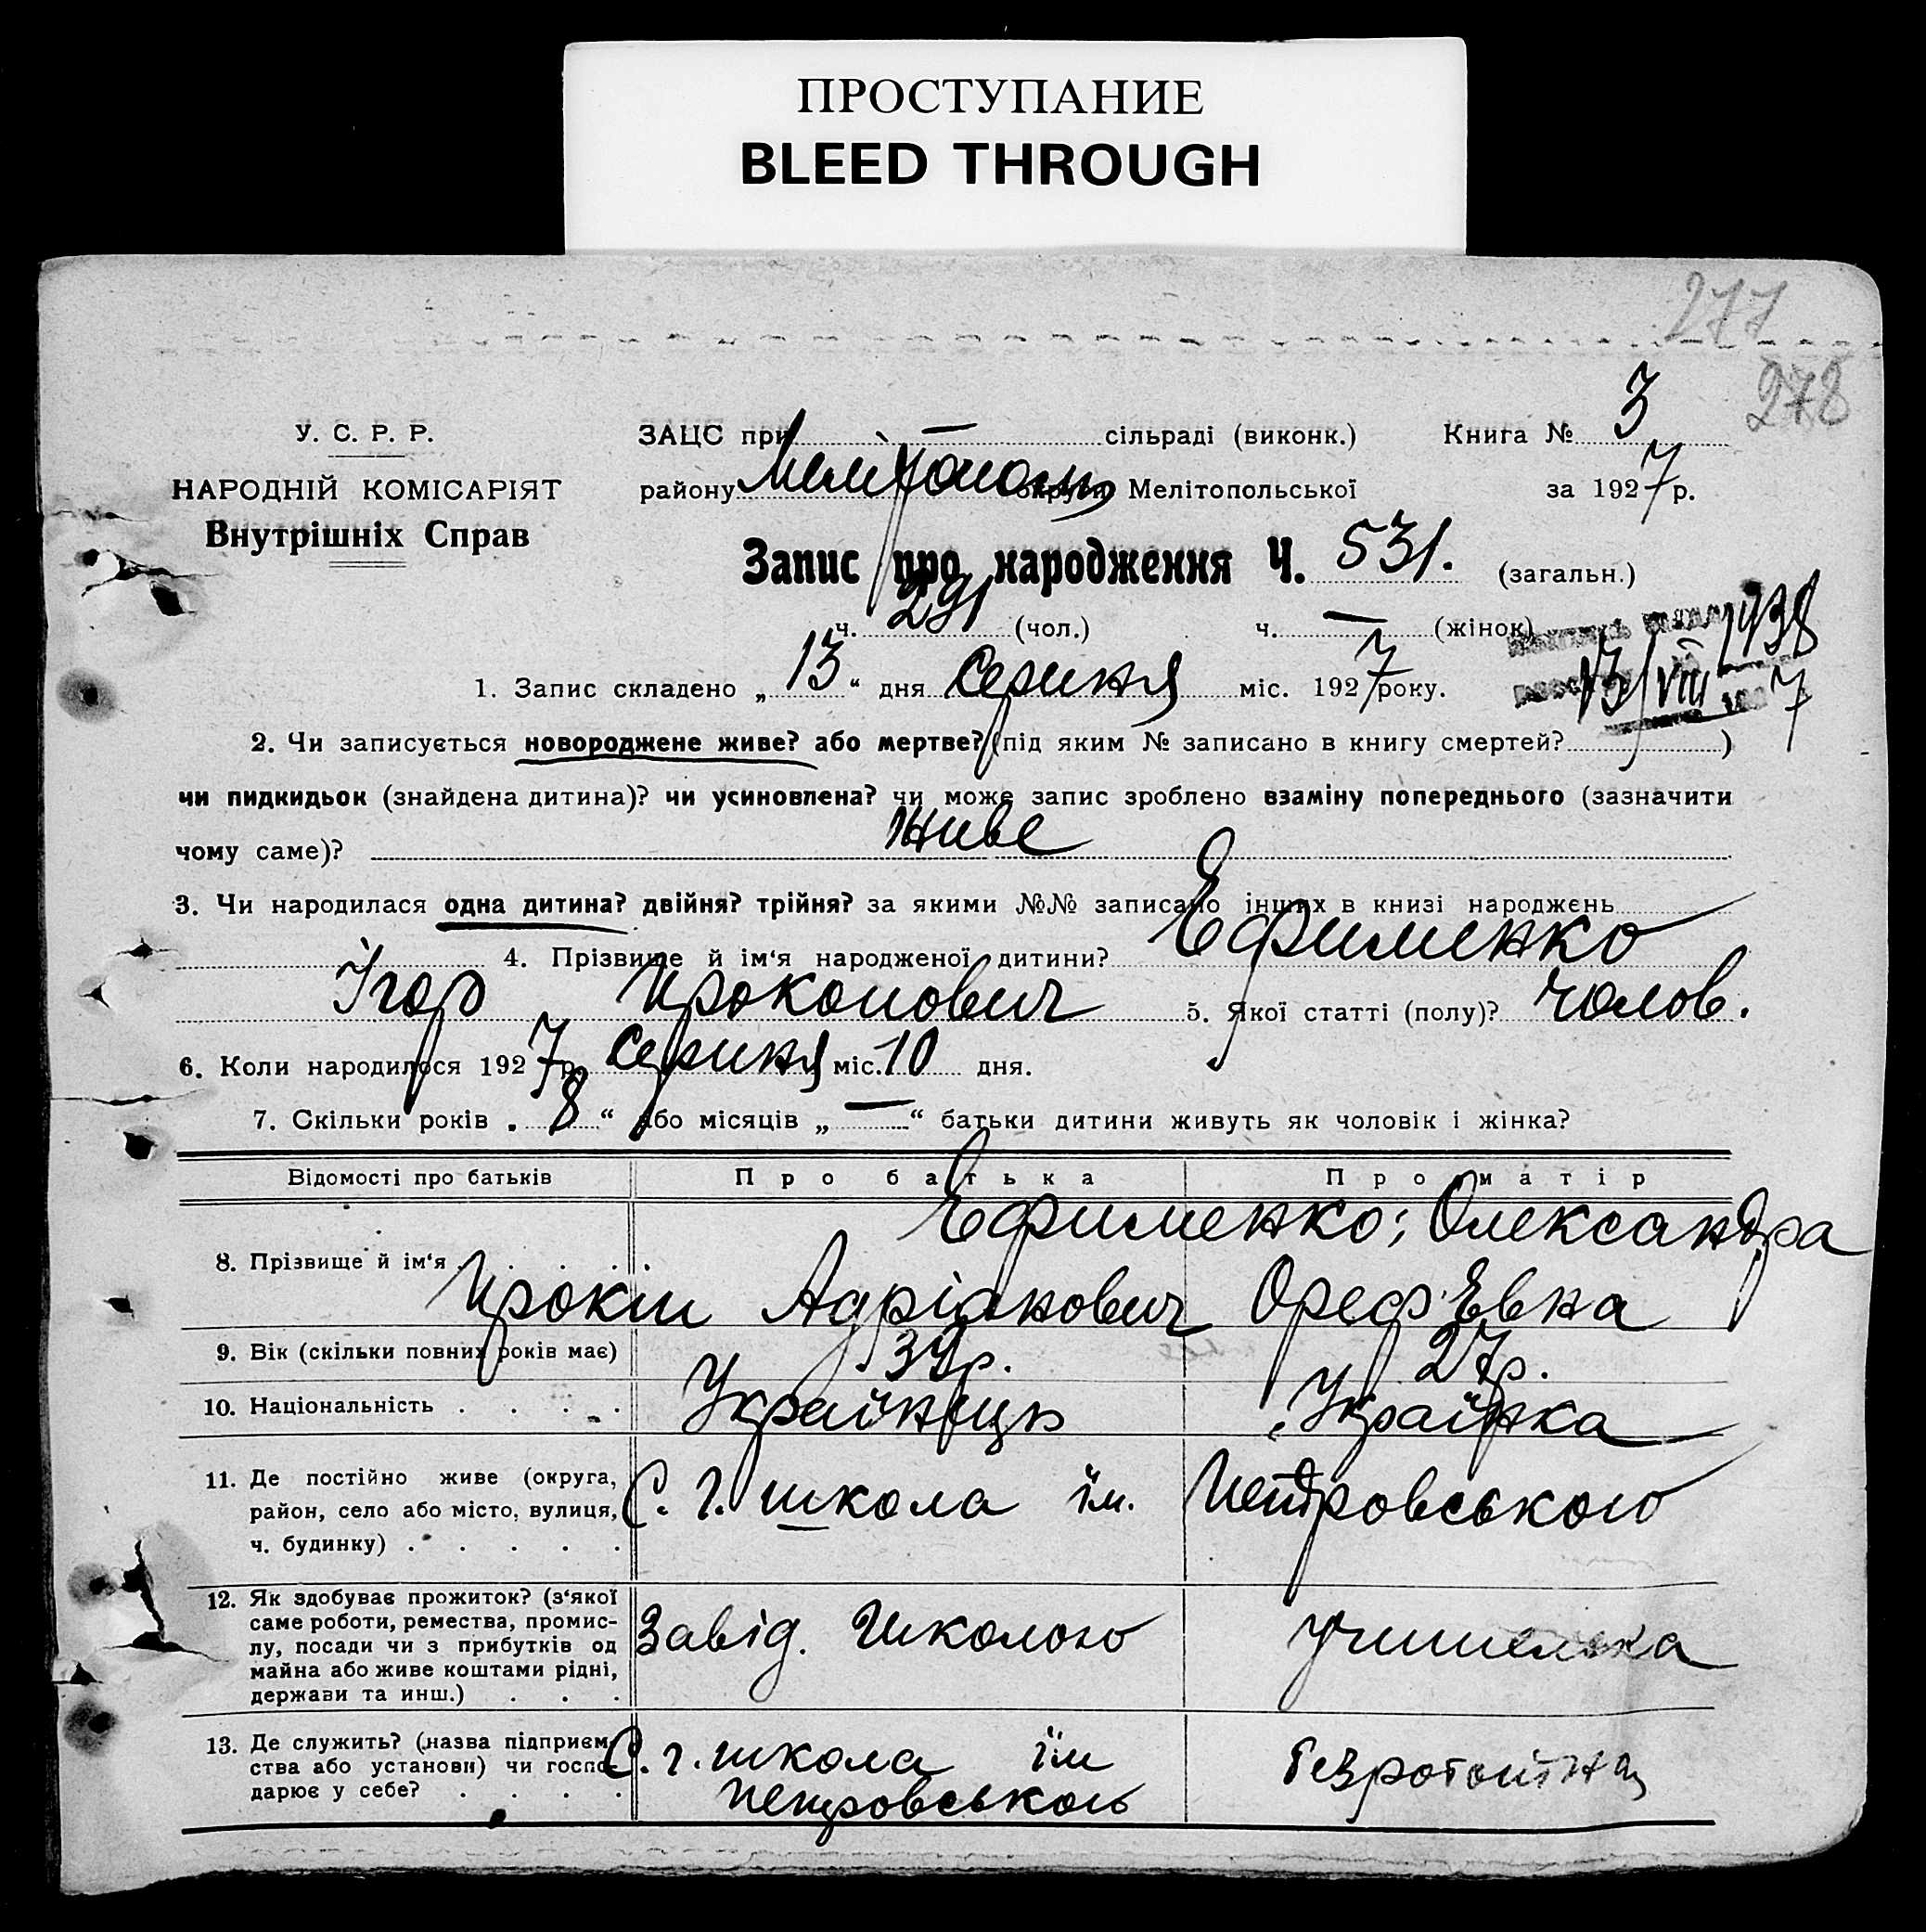 ПРОСТУПАНИЕ
BLEED THROUGH
277
278
У. С. Р. Р.
НАРОДНІЙ КОМІСАРІЯТ
Внутрішніх Справ
ЗАЦС при — сільраді (виконк.) Книга № 3
району Мелітополь округи Мелітопольської за 1927 р.
Запис про народження Ч. 531. (загальн.)
ч. 291 (чол.) ч. — (жінок)
1938
13/VIII
7
1. Запис складено „13“ дня серпня міс. 1927 року.
2. Чи записується новороджене живе? або мертве? (під яким № записано в книгу смертей? )
чи пидкидьок (знайдена дитина)? чи усиновлена? чи може запис зроблено взаміну попереднього (зазначити
чому саме)? живе
3. Чи народилася одна дитина? двійня? трійня? за якими №№ записано інших в книзі народжень
4. Прізвище й ім‘я народженої дитини? Ефименко
Ігор Прокопович 5. Якої статті (полу)? чолов.
6. Коли народилося 1927 р. серпня міс. 10 дня.
7. Скільки років „8“ або місяців „—“ батьки дитини живуть як чоловік і жінка?
Відомості про батьків Про батька Про матір
8. Прізвище й ім‘я Ефименко; Олександра
Прокіп Адріанович Ореф'євна
9. Вік (скільки повних років має) 39р. 27р.
10. Національність Українець Українка
11. Де постійно живе (округа,
район, село або місто, вулиця,
ч. будинку)
С. г. школа ім. Петровського
12. Як здобуває прожиток? (з‘якої
саме роботи, ремества, промис-
лу, посади чи з прибутків од
майна або живе коштами рідні,
держави та инш.)
Завід. Школою
Учителька
13. Де служить? (назва підприєм-
ства або установи) чи госпо-
дарює у себе?
С. г. школа ім
Петровського
безротітня